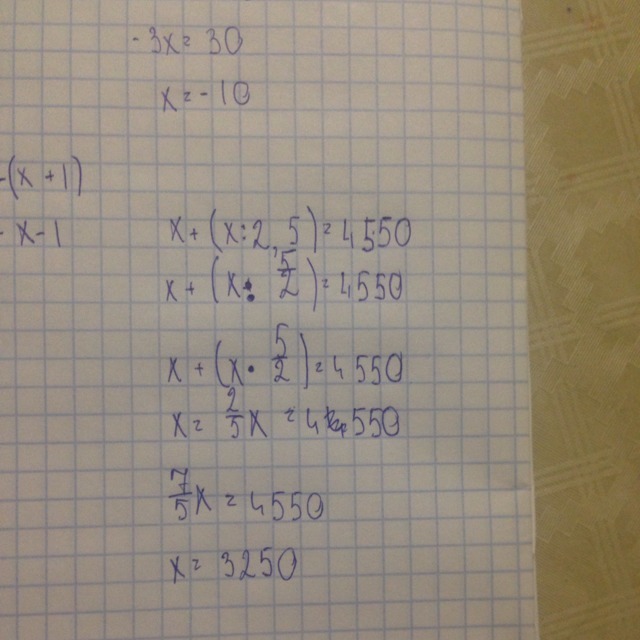 -3x = 30
x = -10
-(x + 1)
- x - 1
x + (x : 2,5) = 4550
x + (x : 5/2) = 4550
x + (x · 5/2) = 4550
x = 2/5 x = 4 550
7/5 x = 4550
x = 3250